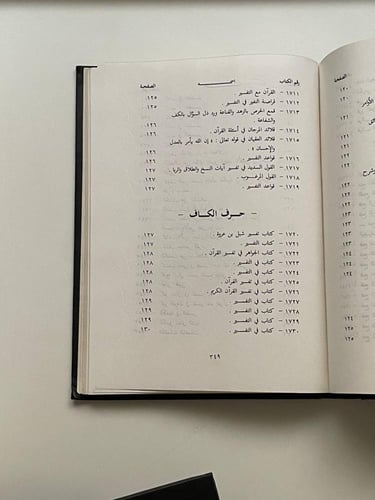 رقم الكتاب اسمه الصفحة
١٧١١ – القرآن مع التفسير . ١٢٥
١٧١٢ – قراضة النقير في التفسير . ١٢٥
١٧١٣ – قمع الحرص بالزهد والقناعة ورد ذل السؤال بالكف
والشفاعة .
١٧١٤ – قلائد المرجان في أسئلة القرآن . ١٢٦
١٧١٥ – قلائد العقيان في قوله تعالى : « إن الله يأمر بالعدل ١٢٦
والإحسان »
١٧١٦ – قواعد التفسير . ١٢٧
١٧١٧ – القول السديد في تفسير آيات البيع والطلاق والربا ١٢٧
١٧١٨ – القول المرغوب . ١٢٧
١٧١٩ – قواعد التفسير . ١٢٧
– حرف الكاف –
١٧٢٠ – كتاب تفسير شبل بن عروة . ١٢٧
١٧٢١ – كتاب التفسير . ١٢٧
١٧٢٢ – كتاب الجواهر في تفسير القرآن . ١٢٨
١٧٢٣ – كتاب في التفسير . ١٢٨
١٧٢٤ – كتاب في التفسير . ١٢٨
١٧٢٥ – كتاب في تفسير القرآن ١٢٨
١٧٢٦ – كتاب في تفسير القرآن الكريم . ١٢٨
١٧٢٧ – كتاب في التفسير . ١٢٨
١٧٢٨ – كتاب في التفسير . ١٢٩
١٧٢٩ – كتاب في التفسير . ١٢٩
١٧٣٠ – كتاب في التفسير . ١٣٠
٣٤٩
الصفحة
١٢٠
١٢٠